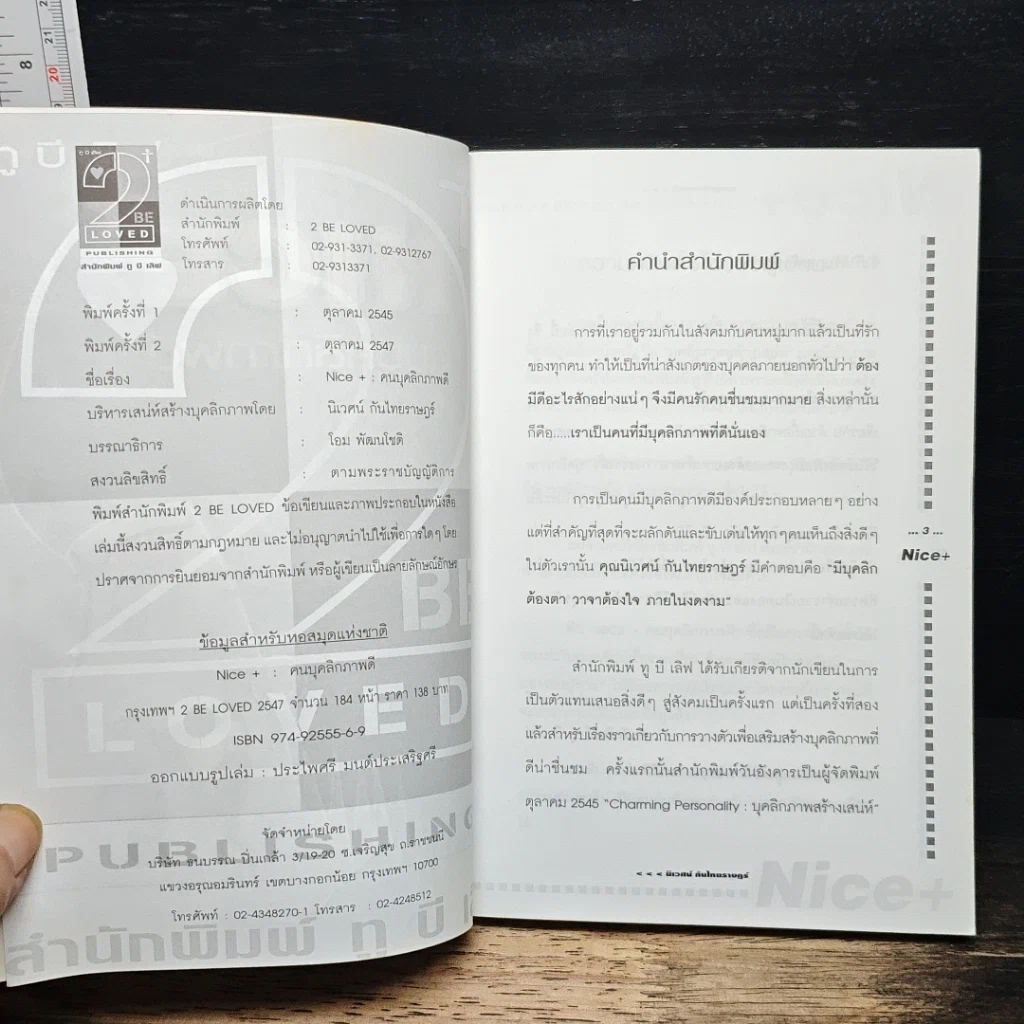 8
21
20
ทู บี
2
BE
LOVED
PUBLISHING
สำนักพิมพ์ ทู บี เลิฟ
ดำเนินการผลิตโดย
สำนักพิมพ์ : 2 BE LOVED
โทรศัพท์ : 02-931-3371, 02-9312767
โทรสาร : 02-9313371
พิมพ์ครั้งที่ 1 : ตุลาคม 2545
พิมพ์ครั้งที่ 2 : ตุลาคม 2547
ชื่อเรื่อง : Nice + : คนบุคลิกภาพดี
บริหารเสน่ห์สร้างบุคลิกภาพโดย : นิเวศน์ กันไทยราษฎร์
บรรณาธิการ : โอม พัฒนโชติ
สงวนลิขสิทธิ์ : ตามพระราชบัญญัติการ
พิมพ์สำนักพิมพ์ 2 BE LOVED ข้อเขียนและภาพประกอบในหนังสือ
เล่มนี้สงวนสิทธิ์ตามกฎหมาย และไม่อนุญาตนำไปใช้เพื่อการใดๆ โดย
ปราศจากการยินยอมจากสำนักพิมพ์ หรือผู้เขียนเป็นลายลักษณ์อักษร
ข้อมูลสำหรับหอสมุดแห่งชาติ
Nice + : คนบุคลิกภาพดี
กรุงเทพฯ 2 BE LOVED 2547 จำนวน 184 หน้า ราคา 138 บาท
ISBN 974-92555-6-9
ออกแบบรูปเล่ม : ประไพศรี มนต์ประเสริฐศรี
จัดจำหน่ายโดย
บริษัท ธนบรรณ ปิ่นเกล้า 3/19-20 ซ.เจริญสุข ถ.ราชชนนี
แขวงอรุณอมรินทร์ เขตบางกอกน้อย กรุงเทพฯ 10700
โทรศัพท์ : 02-4348270-1 โทรสาร : 02-4248512
BE
LOVED
PUBLISHING
สำนักพิมพ์ ทู บี
คำนำสำนักพิมพ์
การที่เราอยู่รวมกันในสังคมกับคนหมู่มาก แล้วเป็นที่รัก
ของทุกคน ทำให้เป็นที่น่าสังเกตของบุคคลภายนอกทั่วไปว่า ต้อง
มีดีอะไรสักอย่างแน่ๆ จึงมีคนรักคนชื่นชมมากมาย สิ่งเหล่านั้น
ก็คือ.....เราเป็นคนที่มีบุคลิกภาพที่ดีนั่นเอง
การเป็นคนมีบุคลิกภาพดีมีองค์ประกอบหลายๆ อย่าง
แต่ที่สำคัญที่สุดที่จะผลักดันและขับเด่นให้ทุกๆคนเห็นถึงสิ่งดีๆ
ในตัวเรานั้น คุณนิเวศน์ กันไทยราษฎร์ มีคำตอบคือ "มีบุคลิก
ต้องตา วาจาต้องใจ ภายในงดงาม"
สำนักพิมพ์ ทู บี เลิฟ ได้รับเกียรติจากนักเขียนในการ
เป็นตัวแทนเสนอสิ่งดีๆ สู่สังคมเป็นครั้งแรก แต่เป็นครั้งที่สอง
แล้วสำหรับเรื่องราวเกี่ยวกับการวางตัวเพื่อเสริมสร้างบุคลิกภาพที่
ดีน่าชื่นชม ครั้งแรกนั้นสำนักพิมพ์วันอังคารเป็นผู้จัดพิมพ์
ตุลาคม 2545 "Charming Personality : บุคลิกภาพสร้างเสน่ห์"
... 3 ...
Nice+
< < < นิเวศน์ กันไทยราษฎร์
Nice+